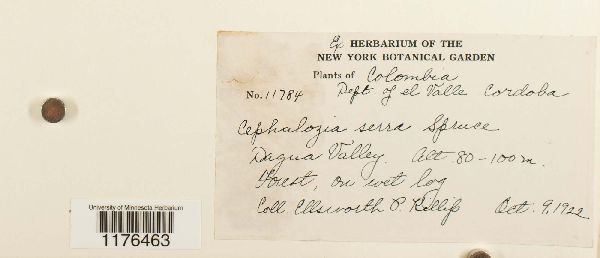 Ex HERBARIUM OF THE
NEW YORK BOTANICAL GARDEN
Plants of Colombia
No. 11784 Dept of el Valle Cordoba
Cephalozia serra Spruce
Dagua Valley. Alt 80-100 m.
Forest, on wet log
Coll. Ellsworth P. Killip Oct. 9, 1922
University of Minnesota Herbarium
1176463